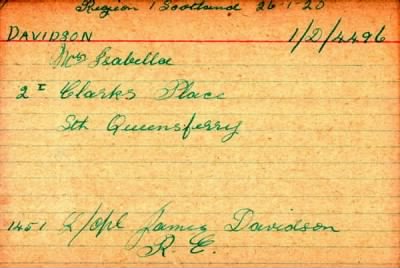 Region 1 Scotland 26-1-20
DAVIDSON 1/D/4496
Mrs Isabella
2 I Clarks Place
Sth Queensferry
1451 L/Cpl James Davidson
R.E.